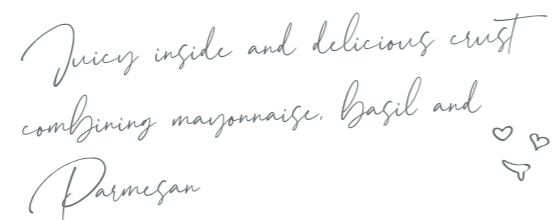 Juicy inside and delicious crust
combining mayonnaise, basil and
Parmesan